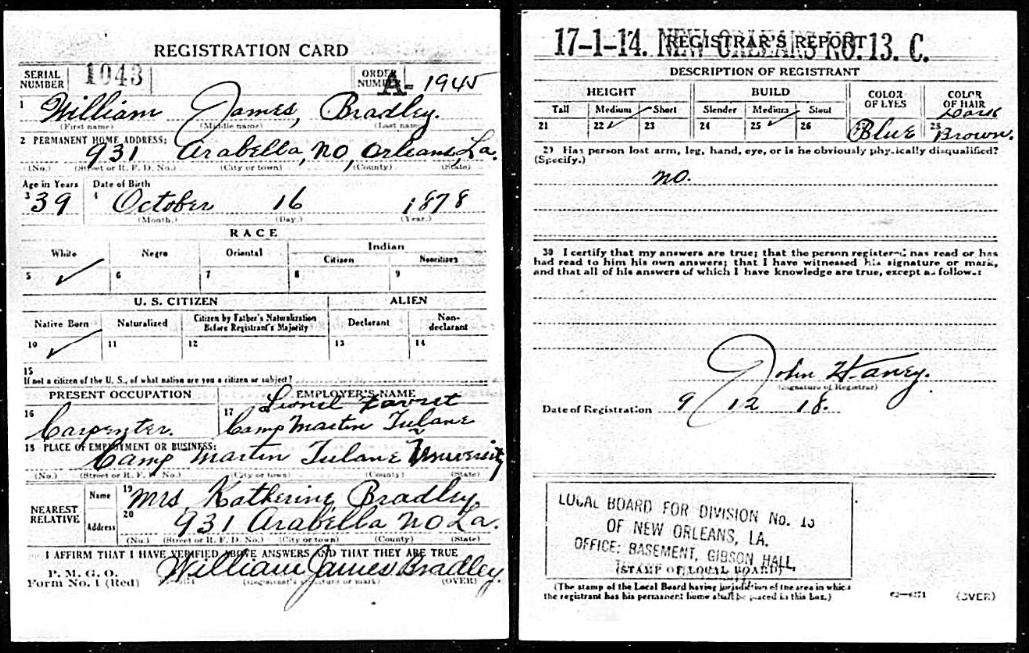 REGISTRATION CARD
SERIAL NUMBER 1043 ORDER NUMBER A-1945
1 William James, Bradley.
(First name) (Middle name) (Last name)
2 PERMANENT HOME ADDRESS:
931 Arabella, NO, Orleans, La.
(No.) (Street or R. F. D. No.) (City or town) (County) (State)
Age in Years Date of Birth
3 39 4 October 16 1878
(Month.) (Day.) (Year.)
RACE
White Negro Oriental Indian
Citizen Noncitizen
5 ✓ 6 7 8 9
U. S. CITIZEN ALIEN
Native Born Naturalized Citizen by Father's Naturalization Before Registrant's Majority Declarant Non-declarant
10 ✓ 11 12 13 14
15
If not a citizen of the U. S., of what nation are you a citizen or subject?
PRESENT OCCUPATION EMPLOYER'S NAME
Lionel Favret
16 Carpenter. 17 Camp Martin Tulane
18 PLACE OF EMPLOYMENT OR BUSINESS:
Camp Martin Tulane University
(No.) (Street or R. F. D. No.) (City or town) (County) (State)
NEAREST RELATIVE
Name 19 Mrs Katherine Bradley
Address 20 931 Arabella NO La.
(No.) (Street or R. F. D. No.) (City or town) (County) (State)
I AFFIRM THAT I HAVE VERIFIED ABOVE ANSWERS AND THAT THEY ARE TRUE
P. M. G. O.
Form No. 1 (Red) William James Bradley
(Registrant's signature or mark) (OVER)
17-1-14. NEW ORLEANS NO. 13. C.
REGISTRAR'S REPORT
DESCRIPTION OF REGISTRANT
HEIGHT BUILD COLOR OF EYES COLOR OF HAIR
Tall Medium Short Slender Medium Stout
21 22 ✓ 23 24 25 ✓ 26 Blue 28 Dark Brown.
29 Has person lost arm, leg, hand, eye, or is he obviously physically disqualified?
(Specify.)
no.
30 I certify that my answers are true; that the person registered has read or has
had read to him his own answers; that I have witnessed his signature or mark,
and that all of his answers of which I have knowledge are true, except as follows:
John Haney.
(Signature of Registrar)
Date of Registration 9/12 18.
LOCAL BOARD FOR DIVISION No. 13
OF NEW ORLEANS, LA.
OFFICE: BASEMENT, GIBSON HALL,
(STAMP OF LOCAL BOARD)
(The stamp of the Local Board having jurisdiction of the area in which
the registrant has his permanent home shall be placed in this box.)
(OVER)